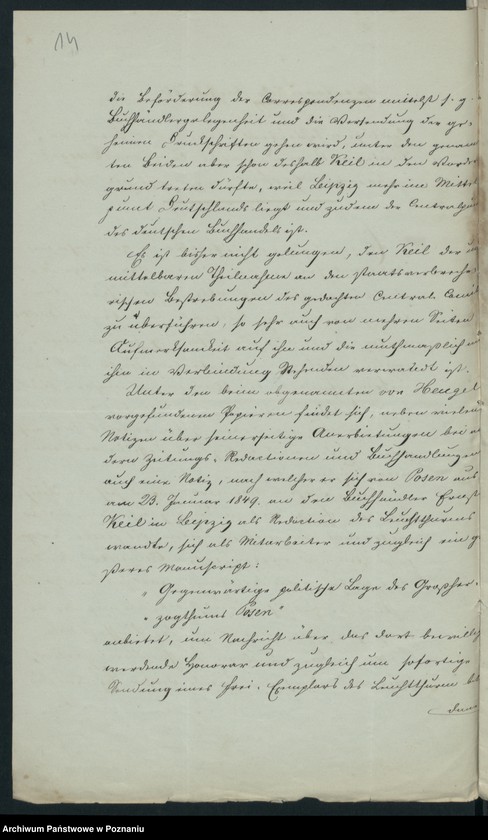 14
die Beförderung der Correspondenzen mittelst s. g.
Buchhändlergelegenheit und die Versendung der ge-
heimen Druckschriften gehen wird, unter den genan
ten Beiden aber schon deshalb Keil in den Vorder
grund treten dürfte, weil Leipzig mehr im Mittel
punkt Deutschlands liegt und zudem der Centralpun
des deutschen Buchhandels ist.
Es ist bisher nicht gelungen, den Keil der un
mittelbaren Theilnahme an den staatsverbreche
rischen Bestrebungen des gedachten Central-Comi
zu überführen, so sehr auch von mehren Seiten
Aufmerksamkeit auf ihn und die muthmaßlich mi
ihm in Verbindung Stehenden verwandt ist.
Unter den beim obgenannten von Hengel
vorgefundenen Papieren findet sich, neben vielen
Notizen über seinerseitige Anerbietungen bei an
dern Zeitungs-Redactionen und Buchhandlungen
auch eine Notiz, nach welcher er sich von Posen aus
am 23. Januar 1849. an den Buchhändler Ernst
Keil in Leipzig als Redaction des Leuchtthurms
wandte, sich als Mitarbeiter und zugleich ein g
ßeres Manuscript:
"Gegenwärtige politische Lage des Großher-
"zogthums Posen"
anbietet, um Nachricht über das dort bewillig
werdende Honorar und zugleich um sofortige
Sendung eines Frei-Exemplars des Leuchtthurm bit
denn
Archiwum Państwowe w Poznaniu